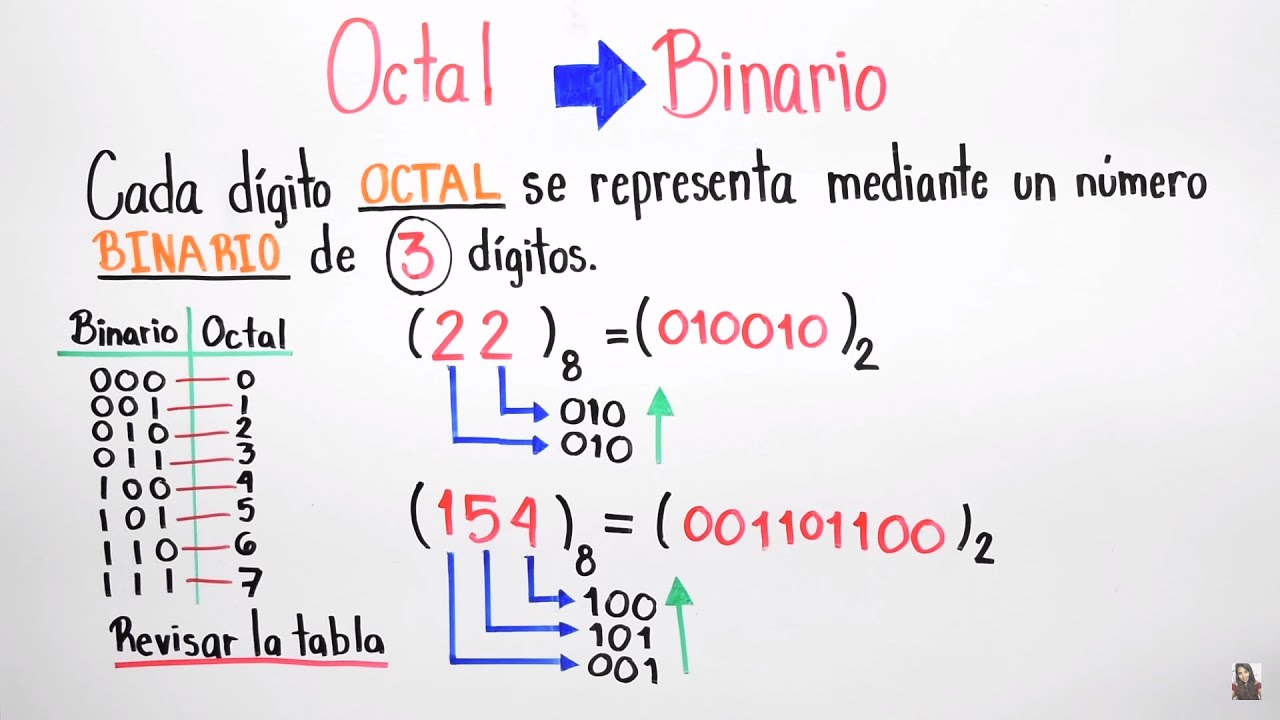 Octal → Binario
Cada dígito OCTAL se representa mediante un número
BINARIO de 3 dígitos.
Binario Octal
000 0
001 1
010 2
011 3
100 4
101 5
110 6
111 7
Revisar la tabla
(22)₈ = (010010)₂
010
010
(154)₈ = (001101100)₂
100
101
001